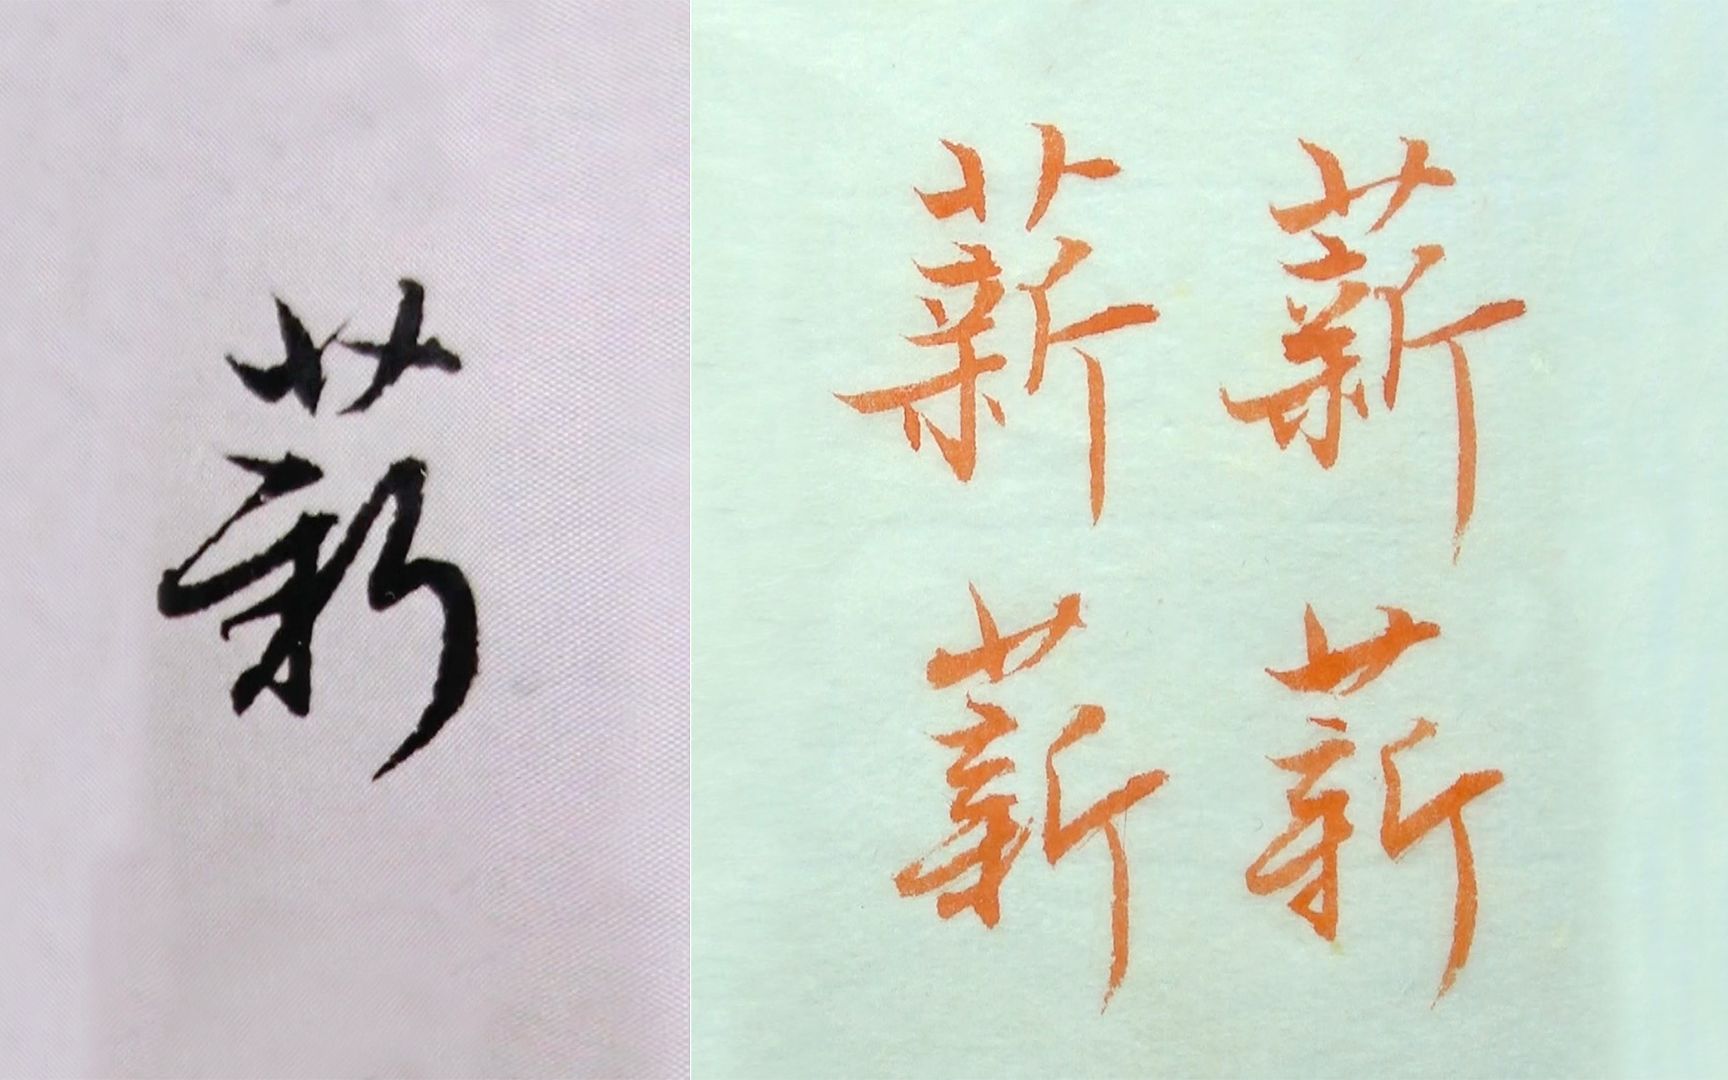 薪
薪 薪
薪 薪